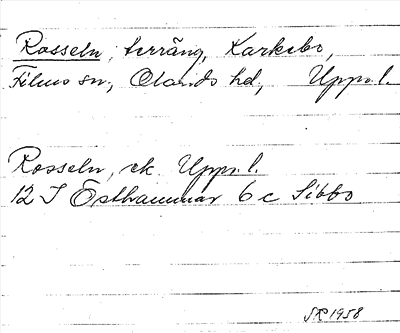 Rosseln, terräng, Karkebo,
Films sn, Olands hd, Uppl.
Rosseln, ek. Uppl.
12 I Östhammar 6 c Sibbo
SR 1958